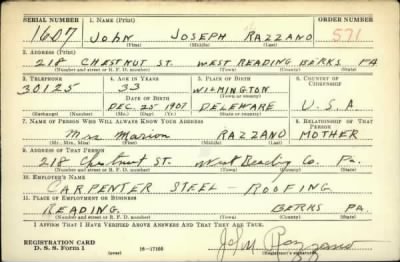 SERIAL NUMBER 1. NAME (Print) ORDER NUMBER
1607 JOHN JOSEPH RAZZANO 571
(First) (Middle) (Last)
2. ADDRESS (Print)
218 CHESTNUT ST. WEST READING BERKS PA
(Number and street or R. F. D. number) (Town) (County) (State)
3. TELEPHONE 4. AGE IN YEARS 5. PLACE OF BIRTH 6. COUNTRY OF CITIZENSHIP
30125 33 WILMINGTON
DATE OF BIRTH (Town or county)
DEC. 25 1907 DELEWARE U.S.A
(Exchange) (Number) (Mo.) (Day) (Yr.) (State or country)
7. NAME OF PERSON WHO WILL ALWAYS KNOW YOUR ADDRESS 8. RELATIONSHIP OF THAT PERSON
Mrs Marion RAZZANO MOTHER
(Mr., Mrs., Miss) (First) (Middle) (Last)
9. ADDRESS OF THAT PERSON
218 Chestnut ST. West Reading Co. Pa.
(Number and street or R. F. D. number) (Town) (County) (State)
10. EMPLOYER'S NAME
CARPENTER STEEL - ROOFING
11. PLACE OF EMPLOYMENT OR BUSINESS
READING BERKS PA.
(Number and street or R. F. D. number) (Town) (County) (State)
I AFFIRM THAT I HAVE VERIFIED ABOVE ANSWERS AND THAT THEY ARE TRUE.
REGISTRATION CARD
D. S. S. Form 1 (over) 16-17105 John Razzano
(Registrant's signature)